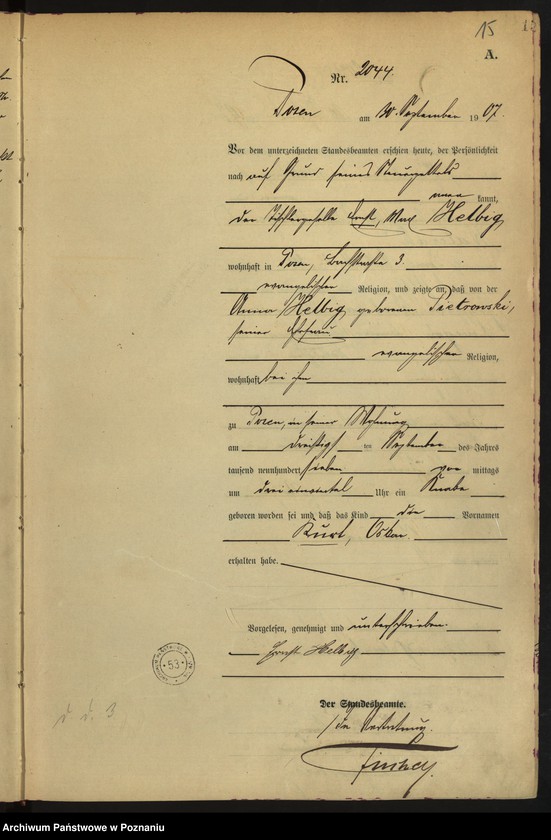 15
A.
Nr. 2044.
Posen am 30. September 1907.
Vor dem unterzeichneten Standesbeamten erschien heute, der Persönlichkeit
nach auf Grund seines Steuerzettels
kannt,
der Tischlergeselle Ernst, Max Helbig
wohnhaft in Posen, Bachstraße 3.
evangelischer Religion, und zeigte an, daß von der
Anna Helbig geborenen Pietrowski,
seiner Ehefrau
evangelischer Religion,
wohnhaft bei ihm
zu Posen, in seiner Wohnung
am dreißigsten September des Jahres
tausend neunhundert sieben vor mittags
um drei einviertel Uhr ein Knabe
geboren worden sei und daß das Kind die Vornamen
Kurt, Oskar.
erhalten habe.
Vorgelesen, genehmigt und unterschrieben.
Ernst Helbig
Der Standesbeamte.
In Vertretung.
53
Archiwum Państwowe w Poznaniu